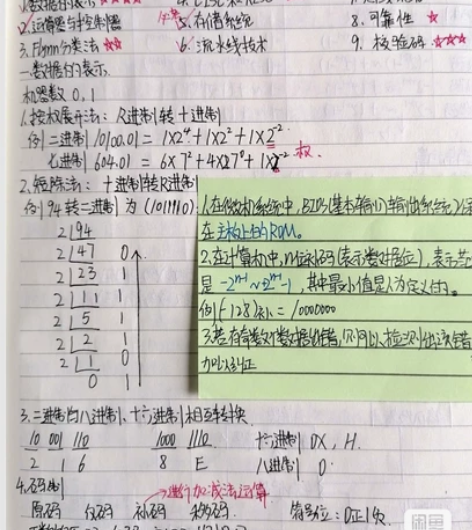 1.数据的表示 ☆☆☆☆
2.运算器与控制器 5.存储系统 8.可靠性 ☆
3.Flynn分类法 ☆☆ 6.流水线技术 9.校验码 ☆☆☆
一.数据的表示.
机器数 0,1
1.按权展开法: R进制转十进制
例 二进制 10100.01 = 1×2⁴+1×2²+1×2⁻²
七进制 604.01 = 6×7²+4×7⁰+1×7⁻² 权.
2.短除法: 十进制转R进制
例 94转二进制 为 (1011110)
2 94
2 47 0
2 23 1
2 11 1
2 5 1
2 2 1
2 1 0
0 1
1.在微机系统中,BIOS(基本输入输出系统)
在主板上的ROM。
2.在计算机中,n位补码(表示数据位),表示范
是 -2ⁿ⁻¹~2ⁿ⁻¹-1,其中最小值是人为定义的。
例[-128]补 = 10000000
3.若有奇数个数据出错,则可以检测出该错
加以纠正
3.二进制与八进制、十六进制相互转换
10 001 110 1000 1110 十六进制 0X, H.
2 1 6 8 E 八进制 O
4.码制 进行加减法运算
原码 反码 补码 移码 符号位: 0正1负
闲鱼